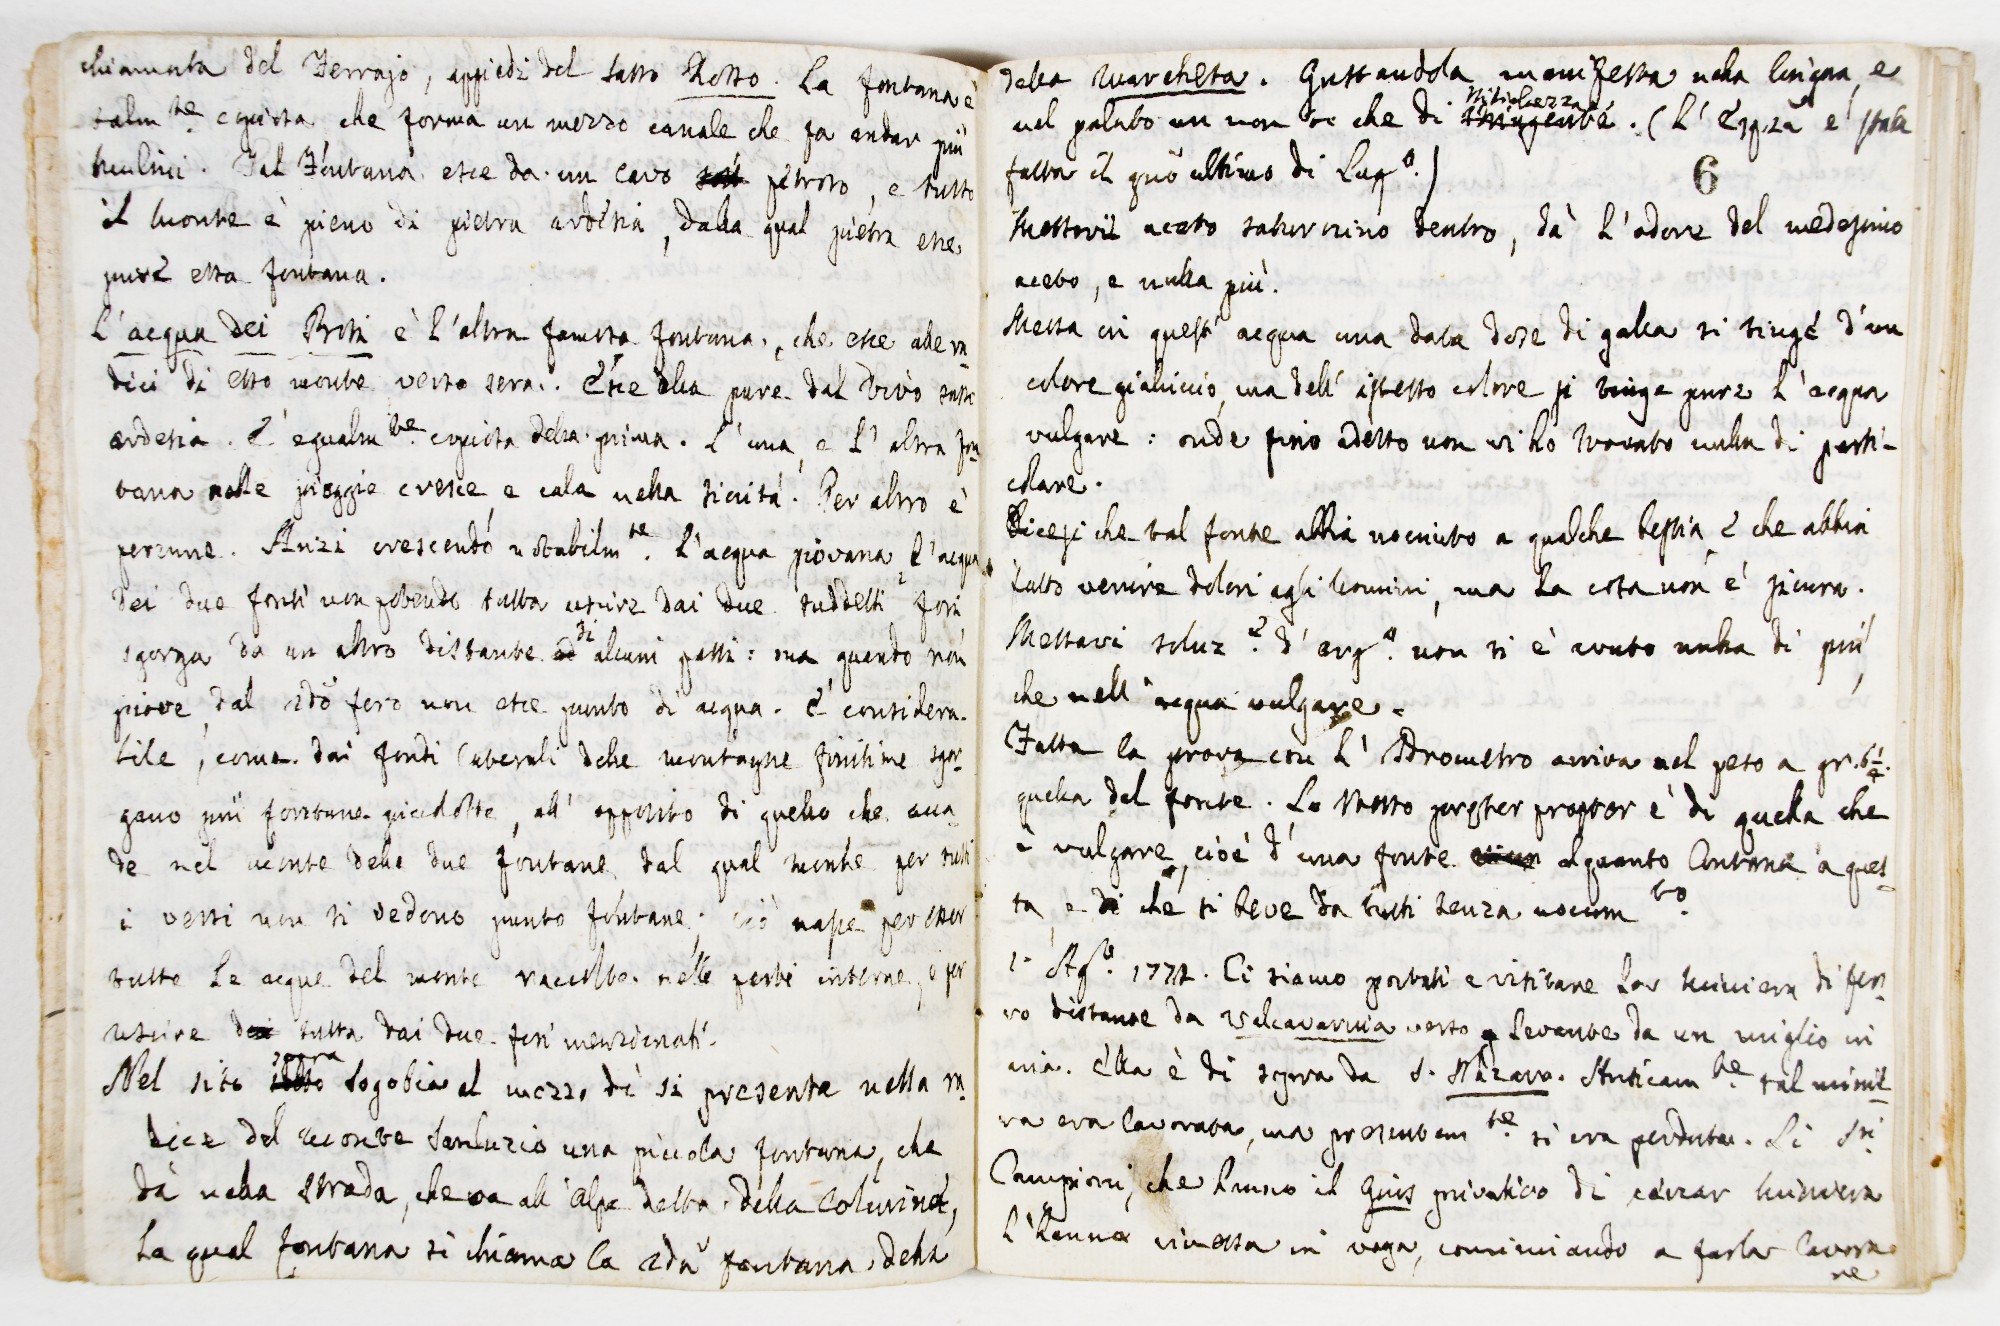 chiamata del Ferrajo, appiedi del sasso Rosso. La fontana è
talm.te copiosa che forma un mezzo canale che fa andar più
mulini. Tal Fontana esce da un cavo petroso, e tutto
il monte è pieno di pietra ardesia, dalla qual pietra esce
pure essa fontana.
L'acqua dei Brosi è l'altra famosa fontana, che esce alle ra
dici di esso monte verso sera. Esce ella pure dal vivo sasso
ardesia. E' egualm.te copiosa della prima. L'una, e l'altra fon
tana nelle pioggie cresce, e cala nella siccità. Per altro è
perenne. Anzi crescendo notabilm.te l'acqua piovana, l'acqua
dei due fonti non potendo tutta uscire dai due suddetti fori
sgorga da un altro distante di alcuni passi: ma quando non
piove, dal sdo foro non esce punto di acqua. E' considera
bile, come dai fondi laterali delle montagne finitime sgor
gano più fontane picciolette, all'opposito di quello che acca
de nel monte delle due fontane, dal qual monte per tutti
i versi non si vedono punto fontane; ciò nasce per esser
tutte le acque del monte raccolte nelle parti interne, e per
uscire tutta dai due fori menzionati.
Nel sito sopra Sogobia al mezzo dì si presenta nella ra
dice del monte Sanluzio una piccola fontana, che
dà nella strada, che va all'alpe detta della Colurina,
la qual fontana si chiama la sda fontana della
della Marchetta. Gustandola manifesta nella lingua, e
nel palato un non so che di stitichezza. (L'Espza è stata
fatta il gno ultimo di Lug.o)
6
Mettovi aceto saturnino dentro, dà l'odore del medesimo
aceto, e nulla più.
Messa in quest'acqua una data dose di galla si tinge d'un
colore gialliccio, ma dell'istesso colore si tinge pure l'acqua
vulgare: onde fino adesso non vi ho trovato nulla di parti-
colare.
Dicesi che tal fonte abbia nociuto a qualche bestia, e che abbia
fatto venire dolori agli uomini, ma la cosa non è sicura.
Messavi soluz.e d'arg.o non si è avuto nulla di più,
che nell'acqua vulgare.
Fatta la prova con l'Idrometro arriva nel peso a gr. 6 1/4.
quella del fonte. Lo stesso propter propter è di quella che
è vulgare, cioè d'una fonte alquanto lontana a ques-
ta, e che si beve da tutti senza nocum.to
1. Ag.o 1772. Ci siamo portati a visitare la miniera di fer
ro distante da Valcavarnia verso levante da un miglio in
aria. Ella è di sopra da S. Nazaro. Anticam.te tal minie
ra era lavorata, ma presentem.te si era perduta. Li Sri
Campioni, che hanno il gius privativo di cavar miniera
l'hanno rimessa in voga, cominciando a farla lavora
re